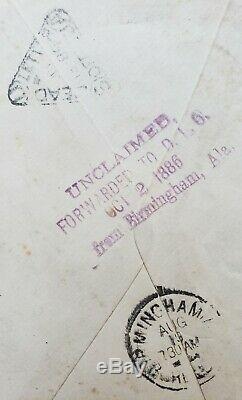 DEAD
UNCLAIMED,
FORWARDED TO D. L. O.
OCT 2 1886
from Birmingham, Ala.
BIRMINGHAM
AUG
7 30 AM